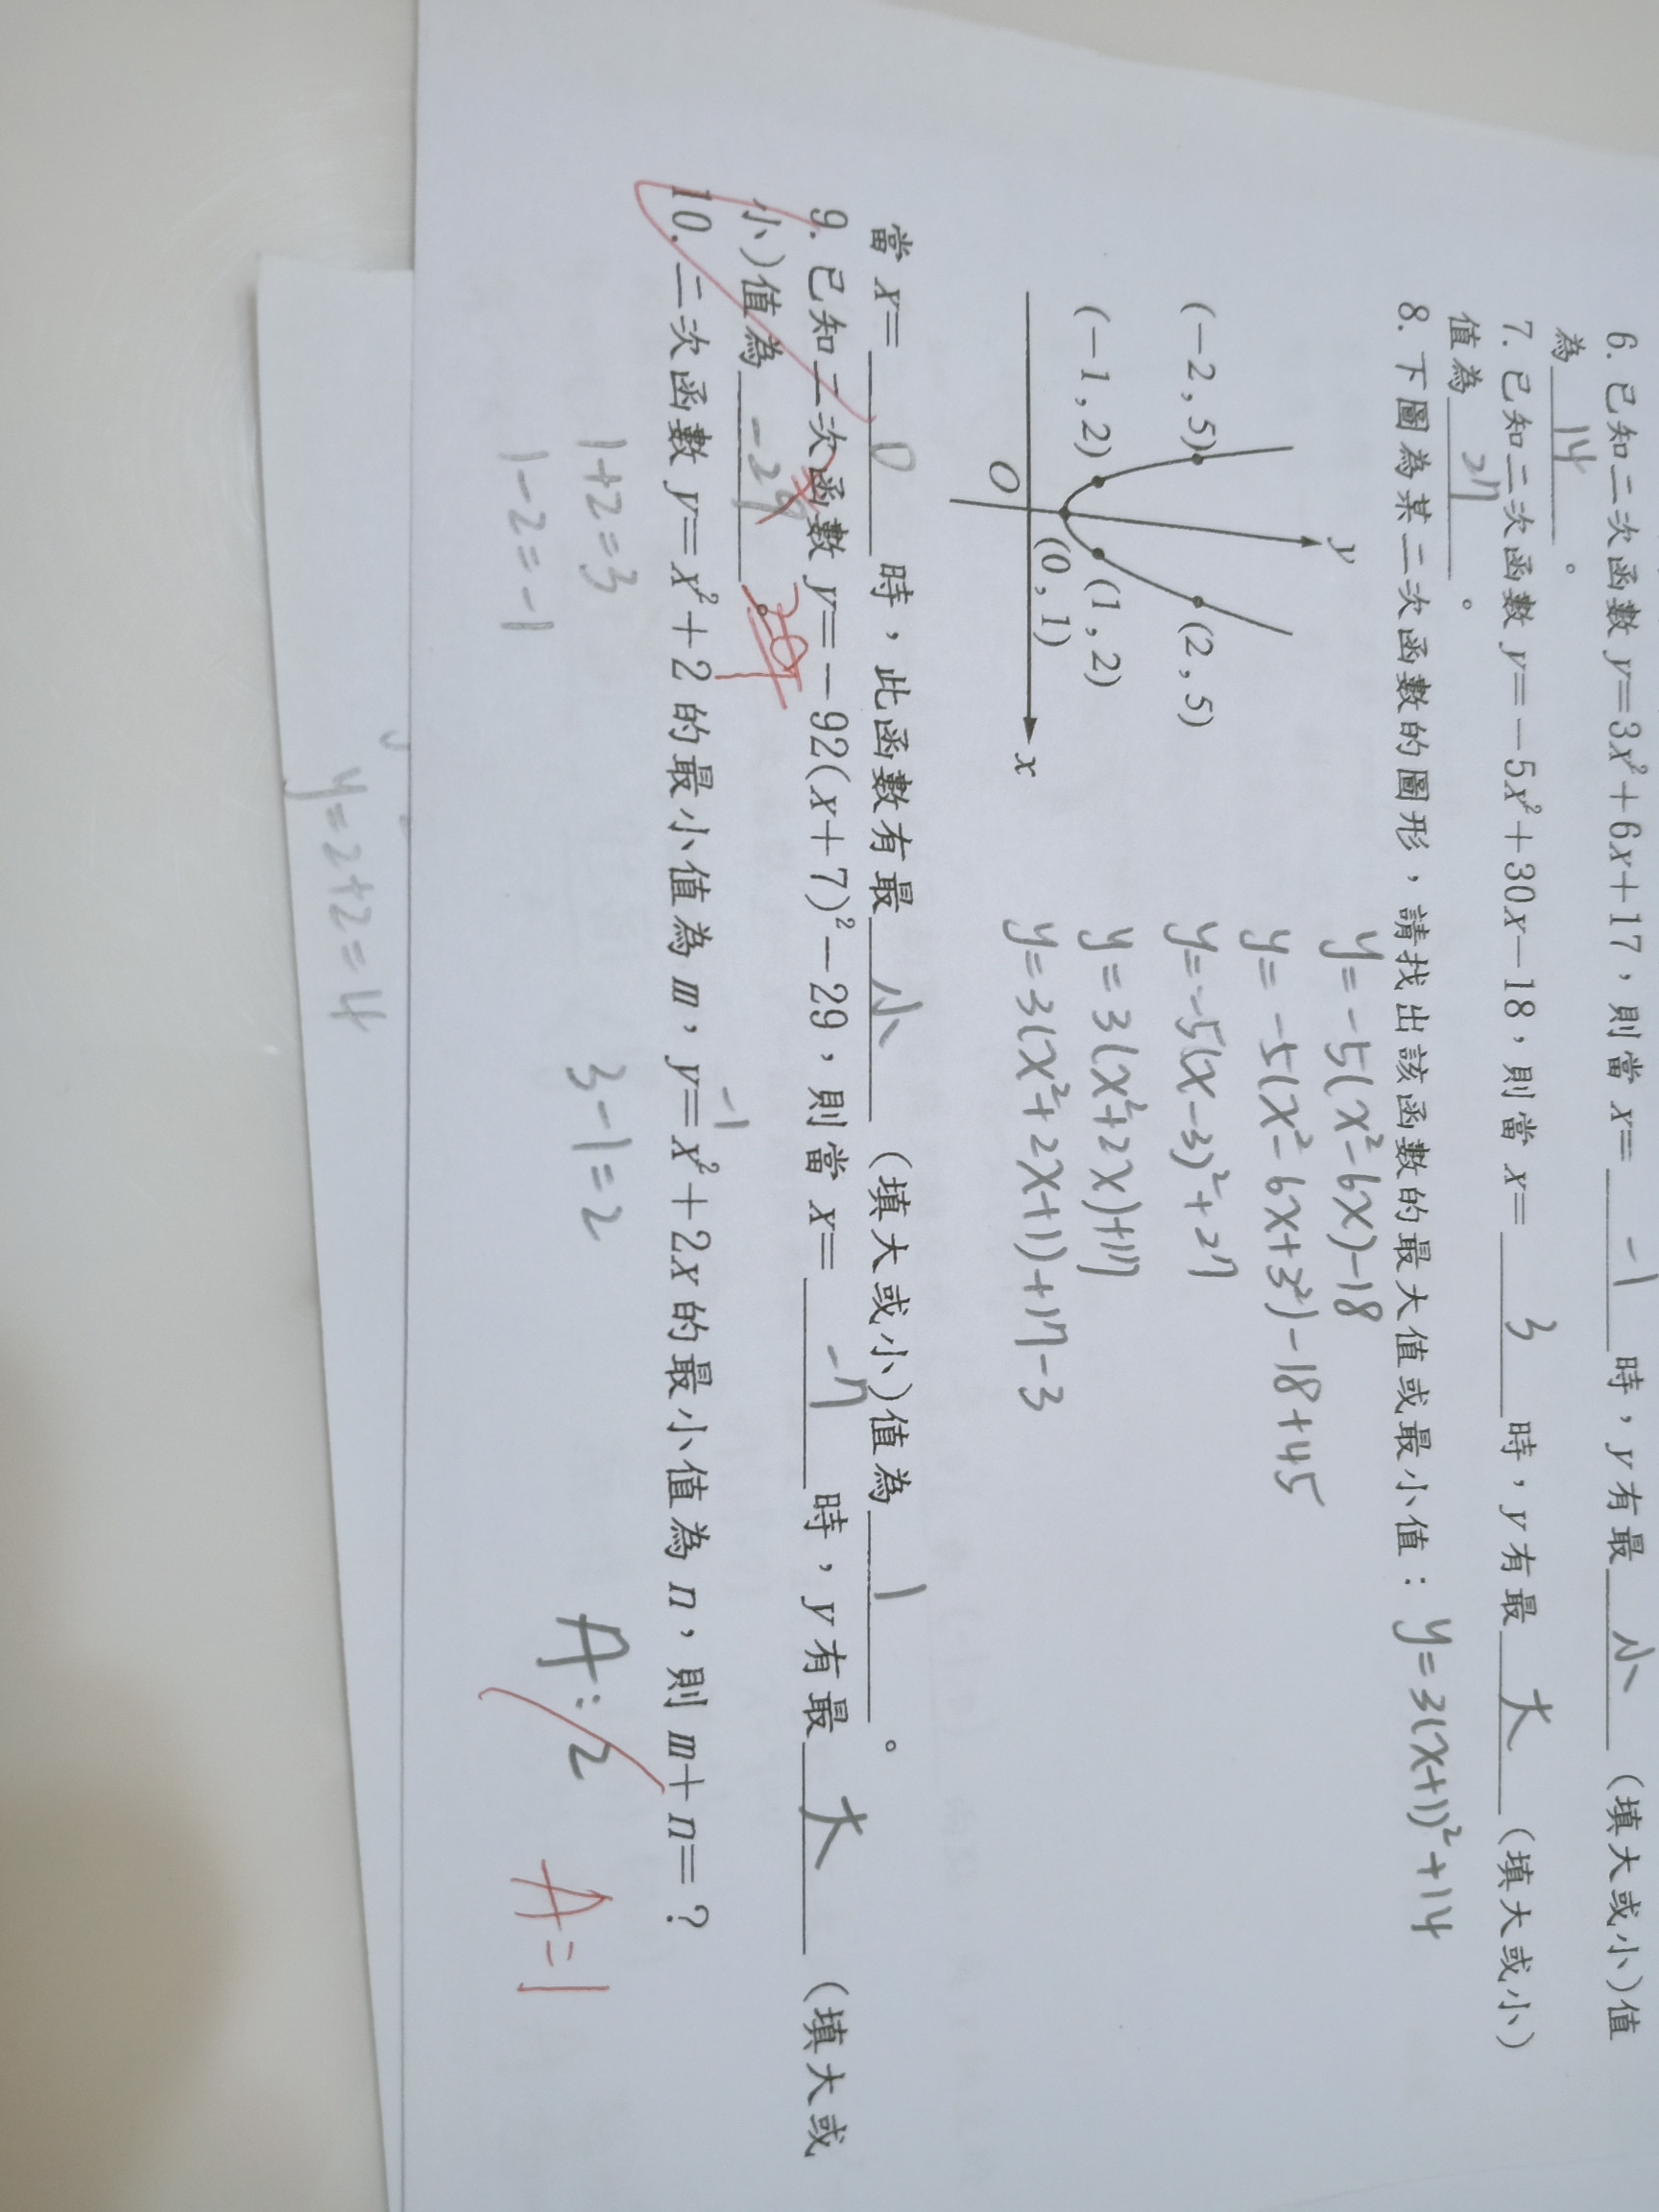 6. 已知二次函數 y=3x²+6x+17，則當 x= -1 時，y 有最 小 (填大或小)值
為 14 。
7. 已知二次函數 y=-5x²+30x-18，則當 x= 3 時，y 有最 大 (填大或小)
值為 27 。
8. 下圖為某二次函數的圖形，請找出該函數的最大值或最小值： y=3(x+1)²+14
y
(-2, 5)
(2, 5)
(-1, 2)
(1, 2)
(0, 1)
O
x
y=-5(x²-6x)-18
y=-5(x²-6x+3²)-18+45
y=-5(x-3)²+27
y=3(x²+2x)+17
y=3(x²+2x+1)+17-3
當 x= 0 時，此函數有最 小 (填大或小)值為 1 。
9. 已知二次函數 y=-92(x+7)²-29，則當 x= -7 時，y 有最 大 (填大或
小)值為 -29 。
-1
10. 二次函數 y=x²+2 的最小值為 m，y=x²+2x 的最小值為 n，則 m+n=？
1+2=3
1-2=-1
3-1=2
A:2
A=1
y=2+2=4